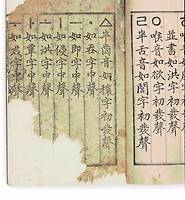 並書如洪字初發聲
ㅇ
喉音如欲字初發聲
ㄹ
半舌音如閭字初發聲
ㅿ
半齒音如穰字初發聲
ㆍ
如呑字中聲
ㅡ
如即字中聲
ㅣ
如侵字中聲
ㅗ
如洪字中聲
ㅏ
如覃字中聲
如君字中聲